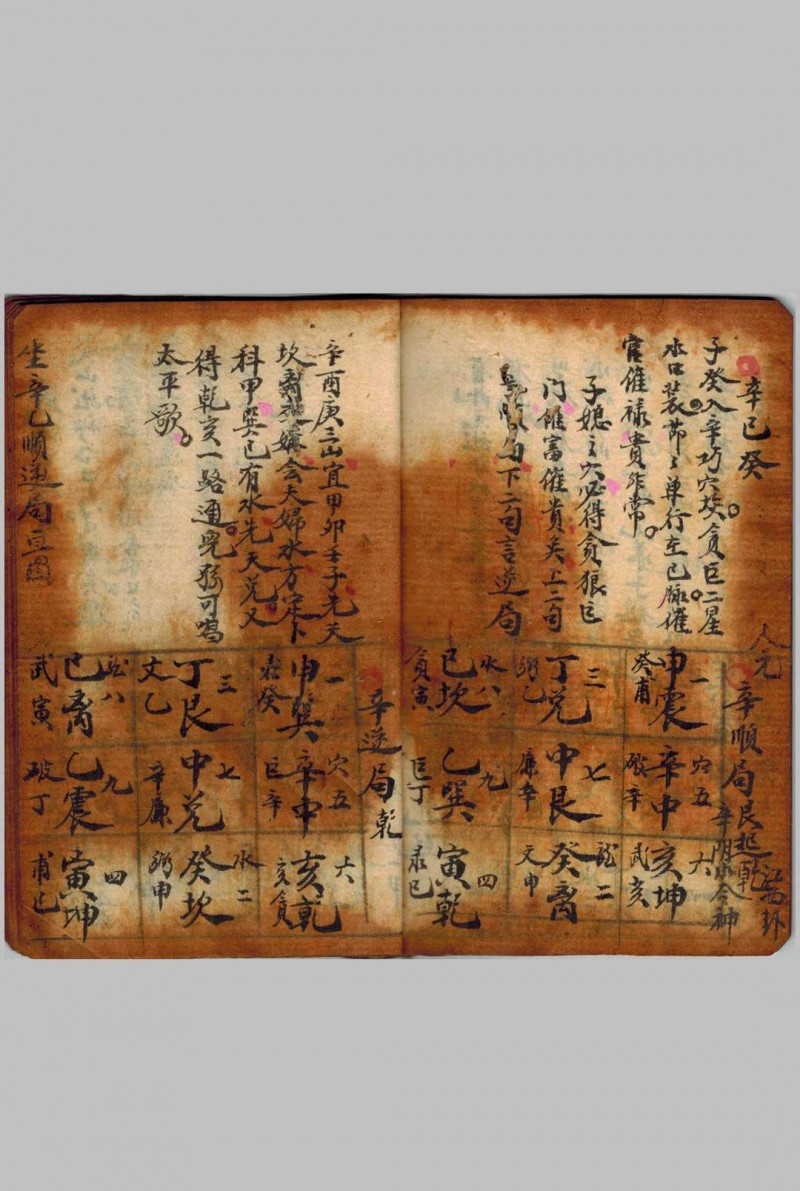 辛巳癸
子癸入辛巧穴坟貪巨二星
水口裝節々专行在已脉催
官催禄貴非常
子媳立穴必得貪狼巨
门催富催貴矣上二句
順局下二句言逆局
人元
辛順局艮起乾
江西卦
辛阴小合神
一
申震
癸甫
穴五
辛中
破辛
六
亥坤
武亥
三
丁兑
弼乙
七
中艮
廉辛
龍二
癸离
文申
水八
巳坎
貪寅
九
乙巽
巨丁
四
寅乾
禄巳
辛酉庚三山宜甲卯壬子先天
坎會夫婦水方定卜
科甲巽巳有水先天兑又
得乾亥一路通兜弼可唱
太平歌
坐辛巳順逆局立圖
辛逆局乾
一
申巽
禄癸
穴五
辛中
巨辛
六
亥乾
亥貪
三
丁艮
文乙
七
中兑
辛廉
水二
癸坎
弼申
龍八
巳离
武寅
九
乙震
破丁
四
寅坤
甫巳